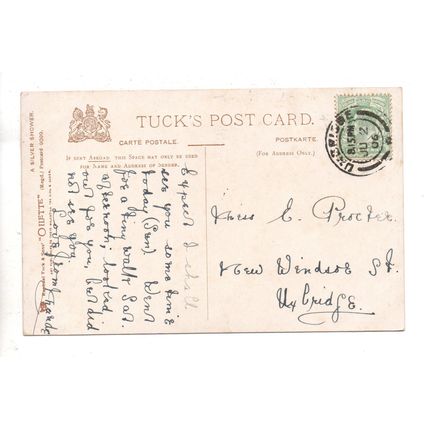 TUCK'S POST CARD.
CARTE POSTALE.
POSTKARTE.
(FOR ADDRESS ONLY.)
IF SENT ABROAD, THIS SPACE MAY ONLY BE USED
FOR NAME AND ADDRESS OF SENDER.
A SILVER SHOWER.
"OILETTE" (Regd.) Postcard
UXBRIDGE
JU 2
06
Expect I shall
see you some time
today (Sun) Went
for a tiny walk Sat.
afternoon, looked
out for you, but did
not see you
Love from
Miss E. Procter
New Windsor St.
Uxbridge.